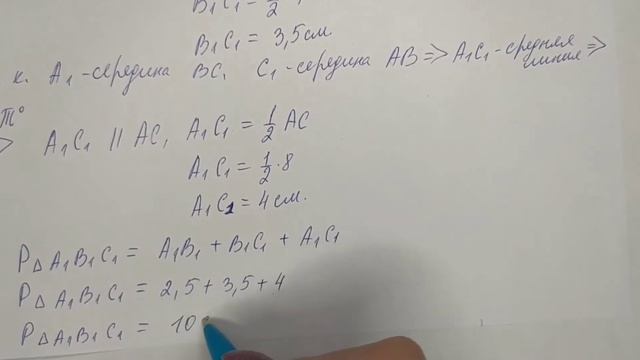 B₁C₁ = 1/2
B₁C₁ = 3,5 см
к. A₁ - середина BC, C₁ - середина AB ⇒ A₁C₁ - средняя линия ⇒
A₁C₁ || AC, A₁C₁ = 1/2 AC
A₁C₁ = 1/2 · 8
A₁C₁ = 4 см.
P△A₁B₁C₁ = A₁B₁ + B₁C₁ + A₁C₁
P△A₁B₁C₁ = 2,5 + 3,5 + 4
P△A₁B₁C₁ = 10